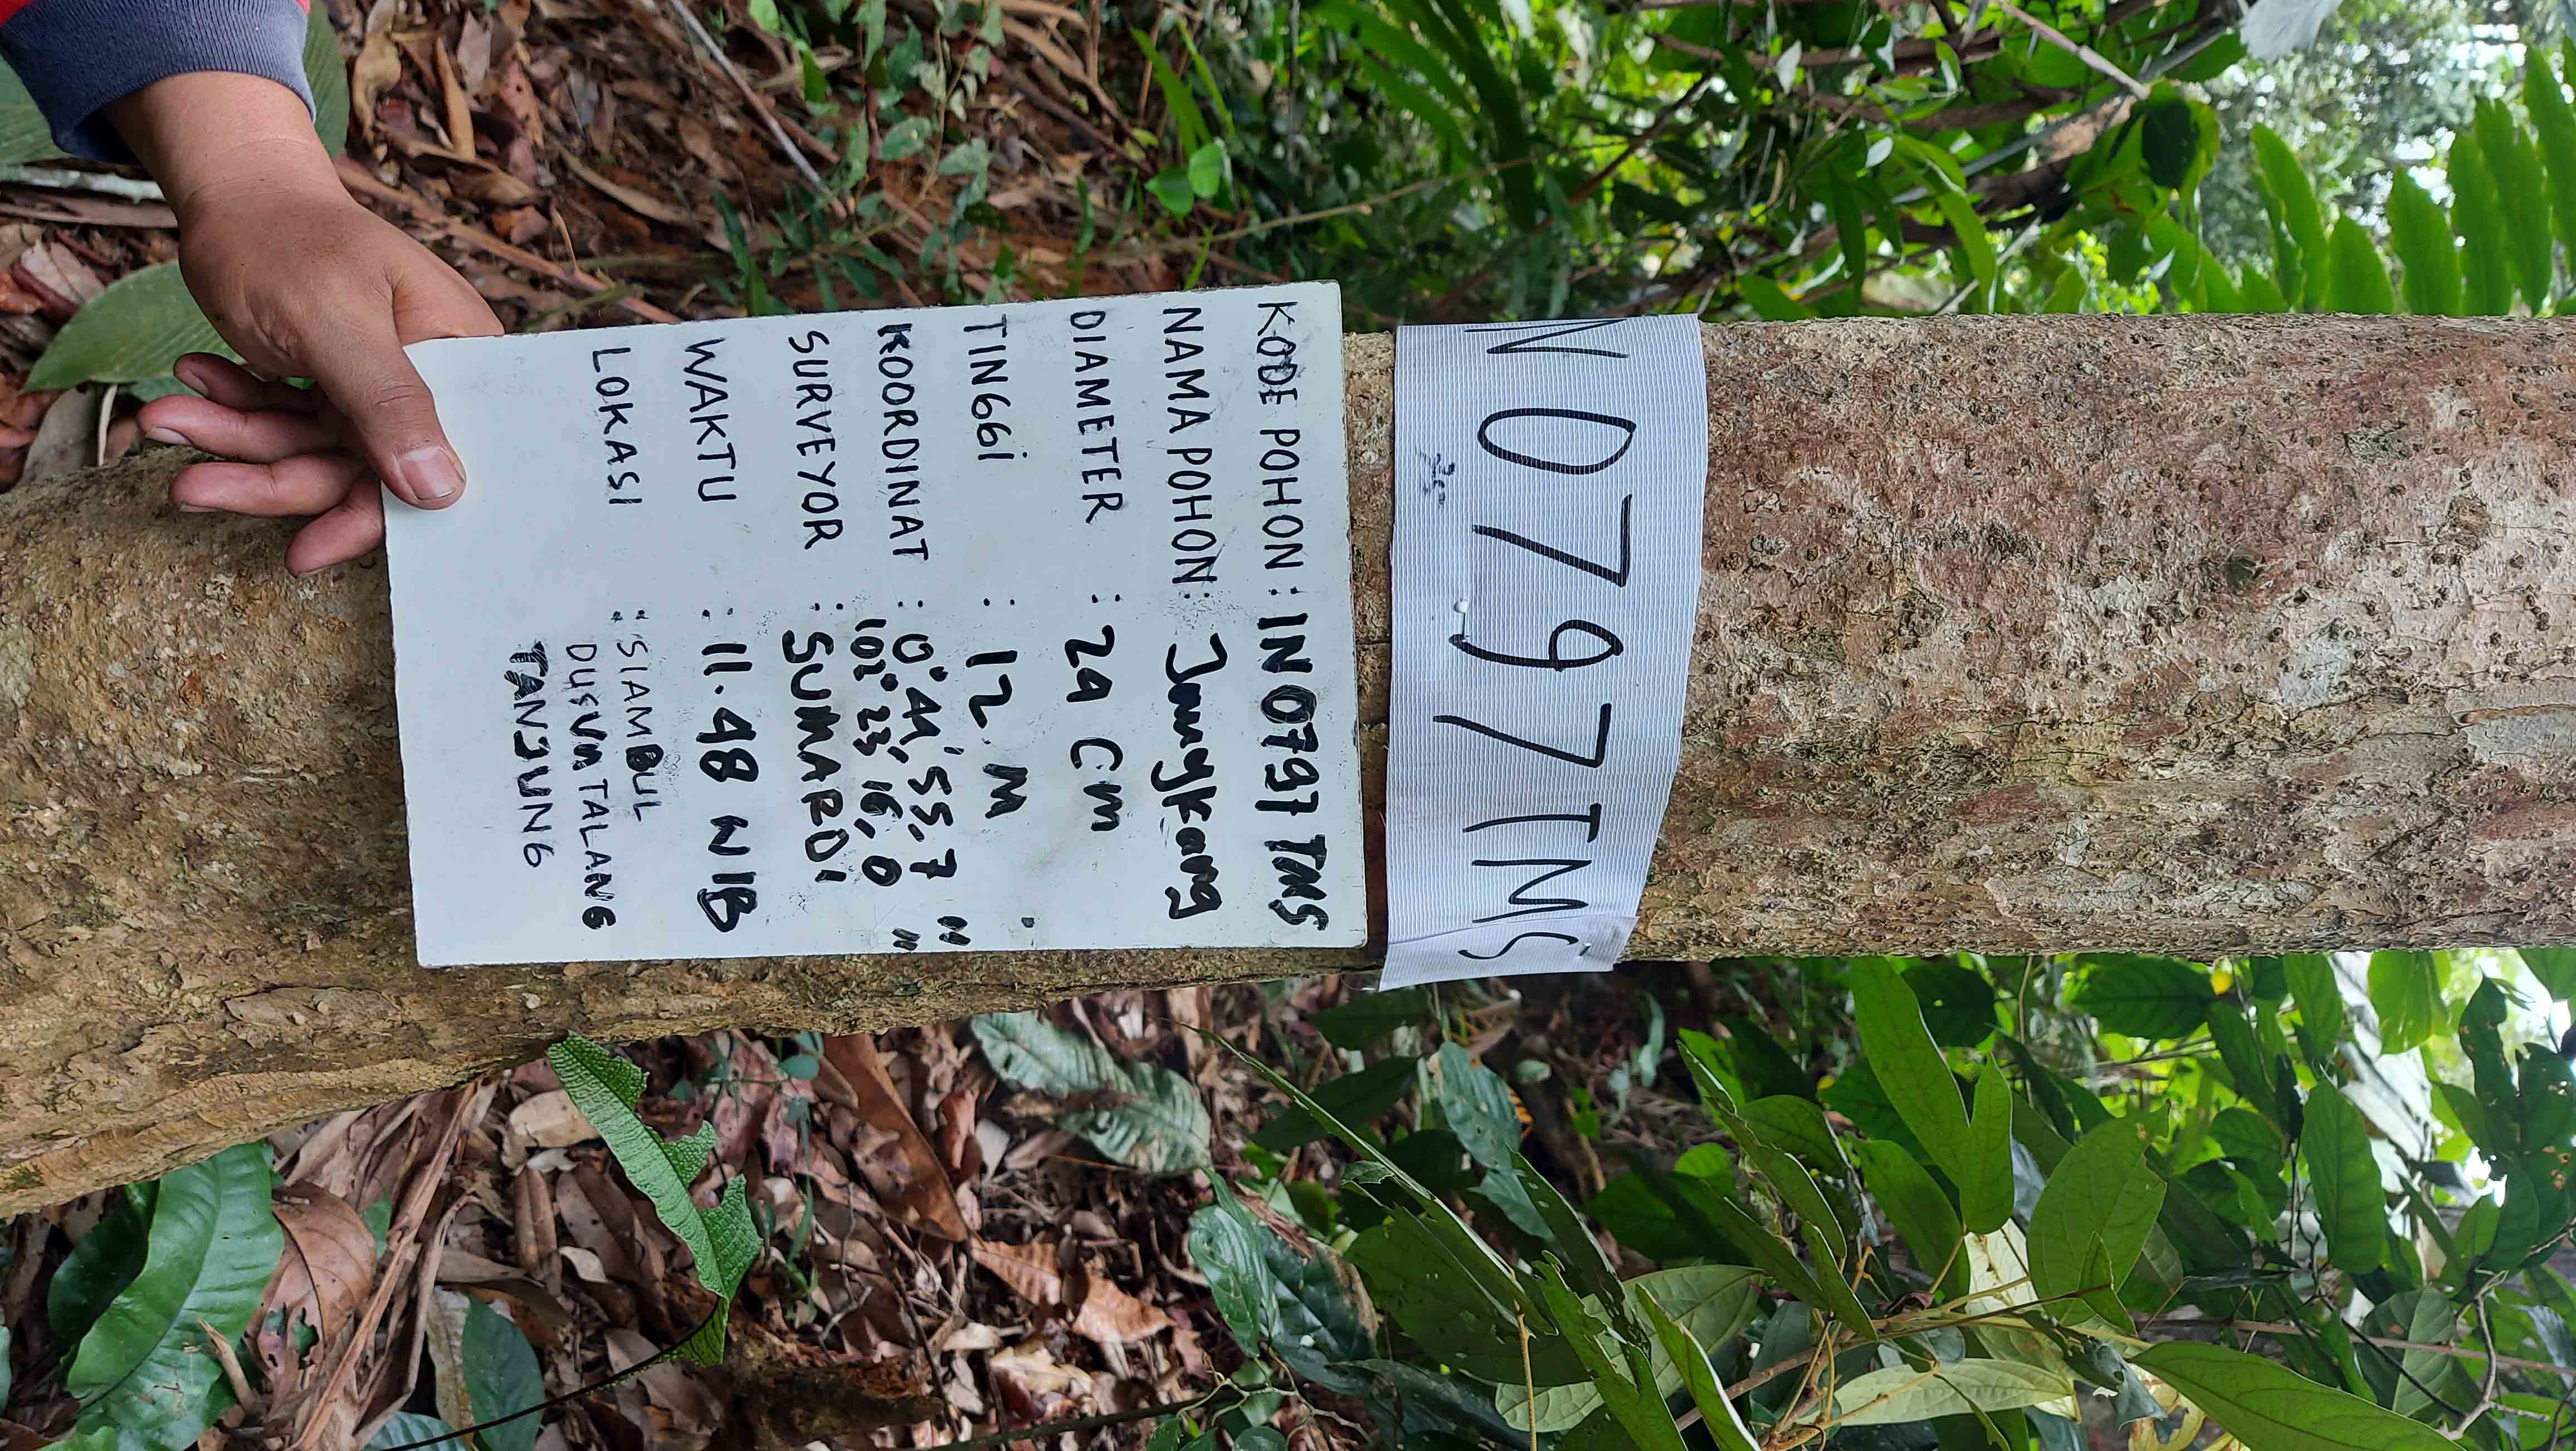 N0797TMS
KODE POHON : IN0797 TMS
NAMA POHON : Jangkang
DIAMETER : 24 CM
TINGGI : 12 M
KOORDINAT : 0° 44' 55,7 "
102° 23' 16,0 "
SURVEYOR : SUMARDI
WAKTU : 11.48 WIB
LOKASI : SIAMBUL
DUSUN TALANG
TANJUNG